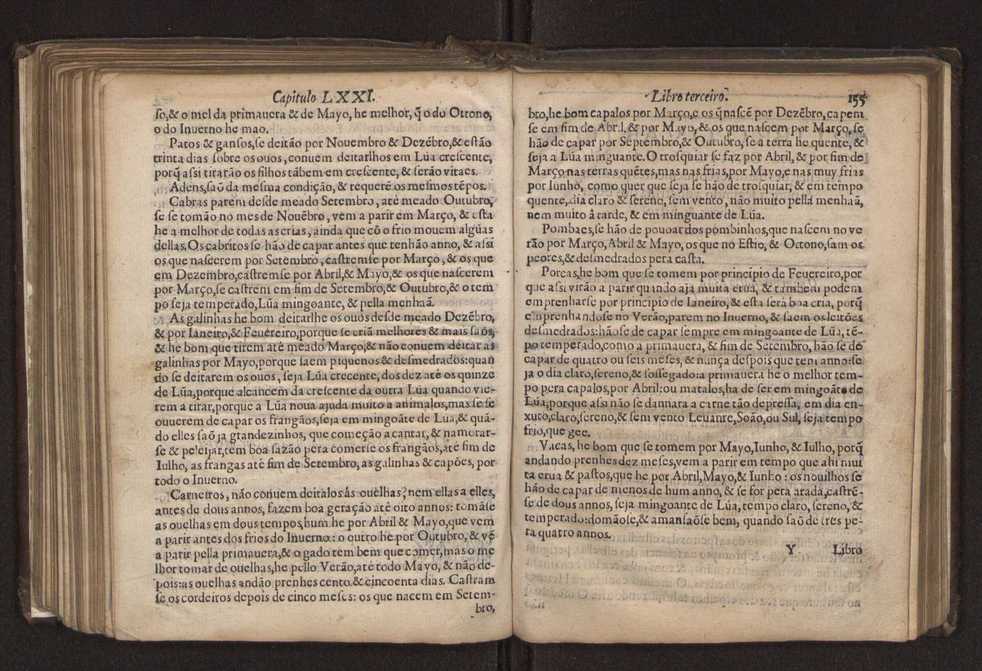 Capitulo LXXI.
so,& o mel da primauera & de Mayo, he melhor, q̃ o do Ottono,
o do Inuerno he mao.
Patos & gansos,se deitão por Nouembro & Dezẽbro,& estão
trinta dias sobre os ouos, conuem deitarlhos em Lũa crescente,
porq̃ assi titarão os filhos tãbem em crescente, & serão viuaes.
Adens,saõ da mesma condição, & requerẽ os mesmos tẽpos.
Cabras parem desde meado Setembro, até meado Outubro,
se se tomão no mes de Nouẽbro, vem a parir em Março, & esta
he a melhor de todas as crias, ainda que cõ o frio mouem algũas
dellas, Os cabritos se hão de capar antes que tenhão anno, & assi
os que nascerem por Setembro, castremse por Março, & os que
em Dezembro,castremse por Abril,& Mayo,& os que nascerem
por Março,se castrem em fim de Setembro,& Outubro,& o tem
po seja temperado,Lũa mingoante, & pella menhaã.
As galinhas he bom deitarlhe os ouos desde meado Dezẽbro,
& por Ianeiro,& Feuereiro,porque se criã melhores & mais saõs,
& he bom que tirem até meado Março,& não conuem deitar as
galinhas por Mayo,porque saem piquenos & desmedrados: quan
do se deitarem os ouos, seja Lũa crecente, dos dez até os quinze
de Lũa,porque alcancem da crescente da outra Lũa quando vie-
rem a tirar,porque a Lũa noua ajuda muito a animalos,mas se se
ouuerem de capar os frangãos,seja em mingoãte de Lũa,& quã-
do elles saõ ja grandezinhos, que começão a cantar, & namorar-
se & peleijar,tem boa sazão pera comerse os frangãos,até fim de
Iulho, as frangas até fim de Setembro, as galinhas & capões, por
todo o Inuerno.
Carneiros, não conuem deitalos às ouelhas, nem ellas a elles,
antes de dous annos, fazem boa geração até oito annos: tomãse
as ouelhas em dous tempos,hum he por Abril & Mayo,que vem
a parir antes dos frios do Inuerno: o outro he por Outubro, & vẽ
a parir pella primauera,& o gado tem bem que comer,mas o me
lhor tomar de ouelhas,he pello Verão,até todo Mayo, & não de-
pois: as ouelhas andão prenhes cento & cincoenta dias. Castram
se os cordeiros depois de cinco meses: os que nacem em Setem-
bro,
Libro terceiro. 155
bro,he bom capalos por Março,e os q̃ nascẽ por Dezẽbro,capem
se em fim de Abril,& por Mayo, & os que nascem por Março, se
hão de capar por Septembro,& Outubro, se a terra he quente, &
seja a Lũa minguante. O trosquiar se faz por Abril, & por fim de
Março nas terras quẽtes,mas nas frias,por Mayo,e nas muy frias
por Iunho, como quer que seja se hão de trosquiar, & em tempo
quente,dia claro & sereno, sem vento, não muito pella menhaã,
nem muito à tarde, & em minguante de Lũa.
Pombaes,se hão de pouoar dos pombinhos,que nascem no ve
rão por Março, Abril & Mayo, os que no Estio, & Ottono, sam os
peores,& desmedrados pera casta.
Porcas,he bom que se tomem por principio de Feuereiro,por
que assi virão a parir quando aja muita erua, & tambem podem
emprenharse por principio de Ianeiro, & esta será boa cria, porq̃
emprenhandose no Verão,parem no Inuerno, & saem os leitões
desmedrados: hãose de capar sempre em mingoante de Lũa, tẽ-
po temperado,como a primauera, & fim de Setembro, hão se de
capar de quatro ou seis meses, & nunça despois que tem anno: se
ja o dia claro,sereno,& sossegado: a primauera he o melhor tem-
po pera capalos,por Abril: ou matalos,ha de ser em mingoãte de
Lũa,porque assi não se dannara a carne tão depressa, em dia en-
xuto,claro,sereno,& sem vento Leuante,Soão,ou Sul, seja tempo
frio,que gee.
Vacas, he bom que se tomem por Mayo,Iunho, & Iulho, porq̃
andando prenhes dez meses,vem a parir em tempo que ahi mui
ta erua & pastos,que he por Abril,Mayo,& Iunho: os nouilhos se
hão de capar de menos de hum anno, & se for pera arada,castrẽ-
se de dous annos, seja mingoante de Lũa, tempo claro, sereno, &
temperado: domãose,& amansaõse bem, quando saõ de tres pe-
ra quatro annos.
Y Libro